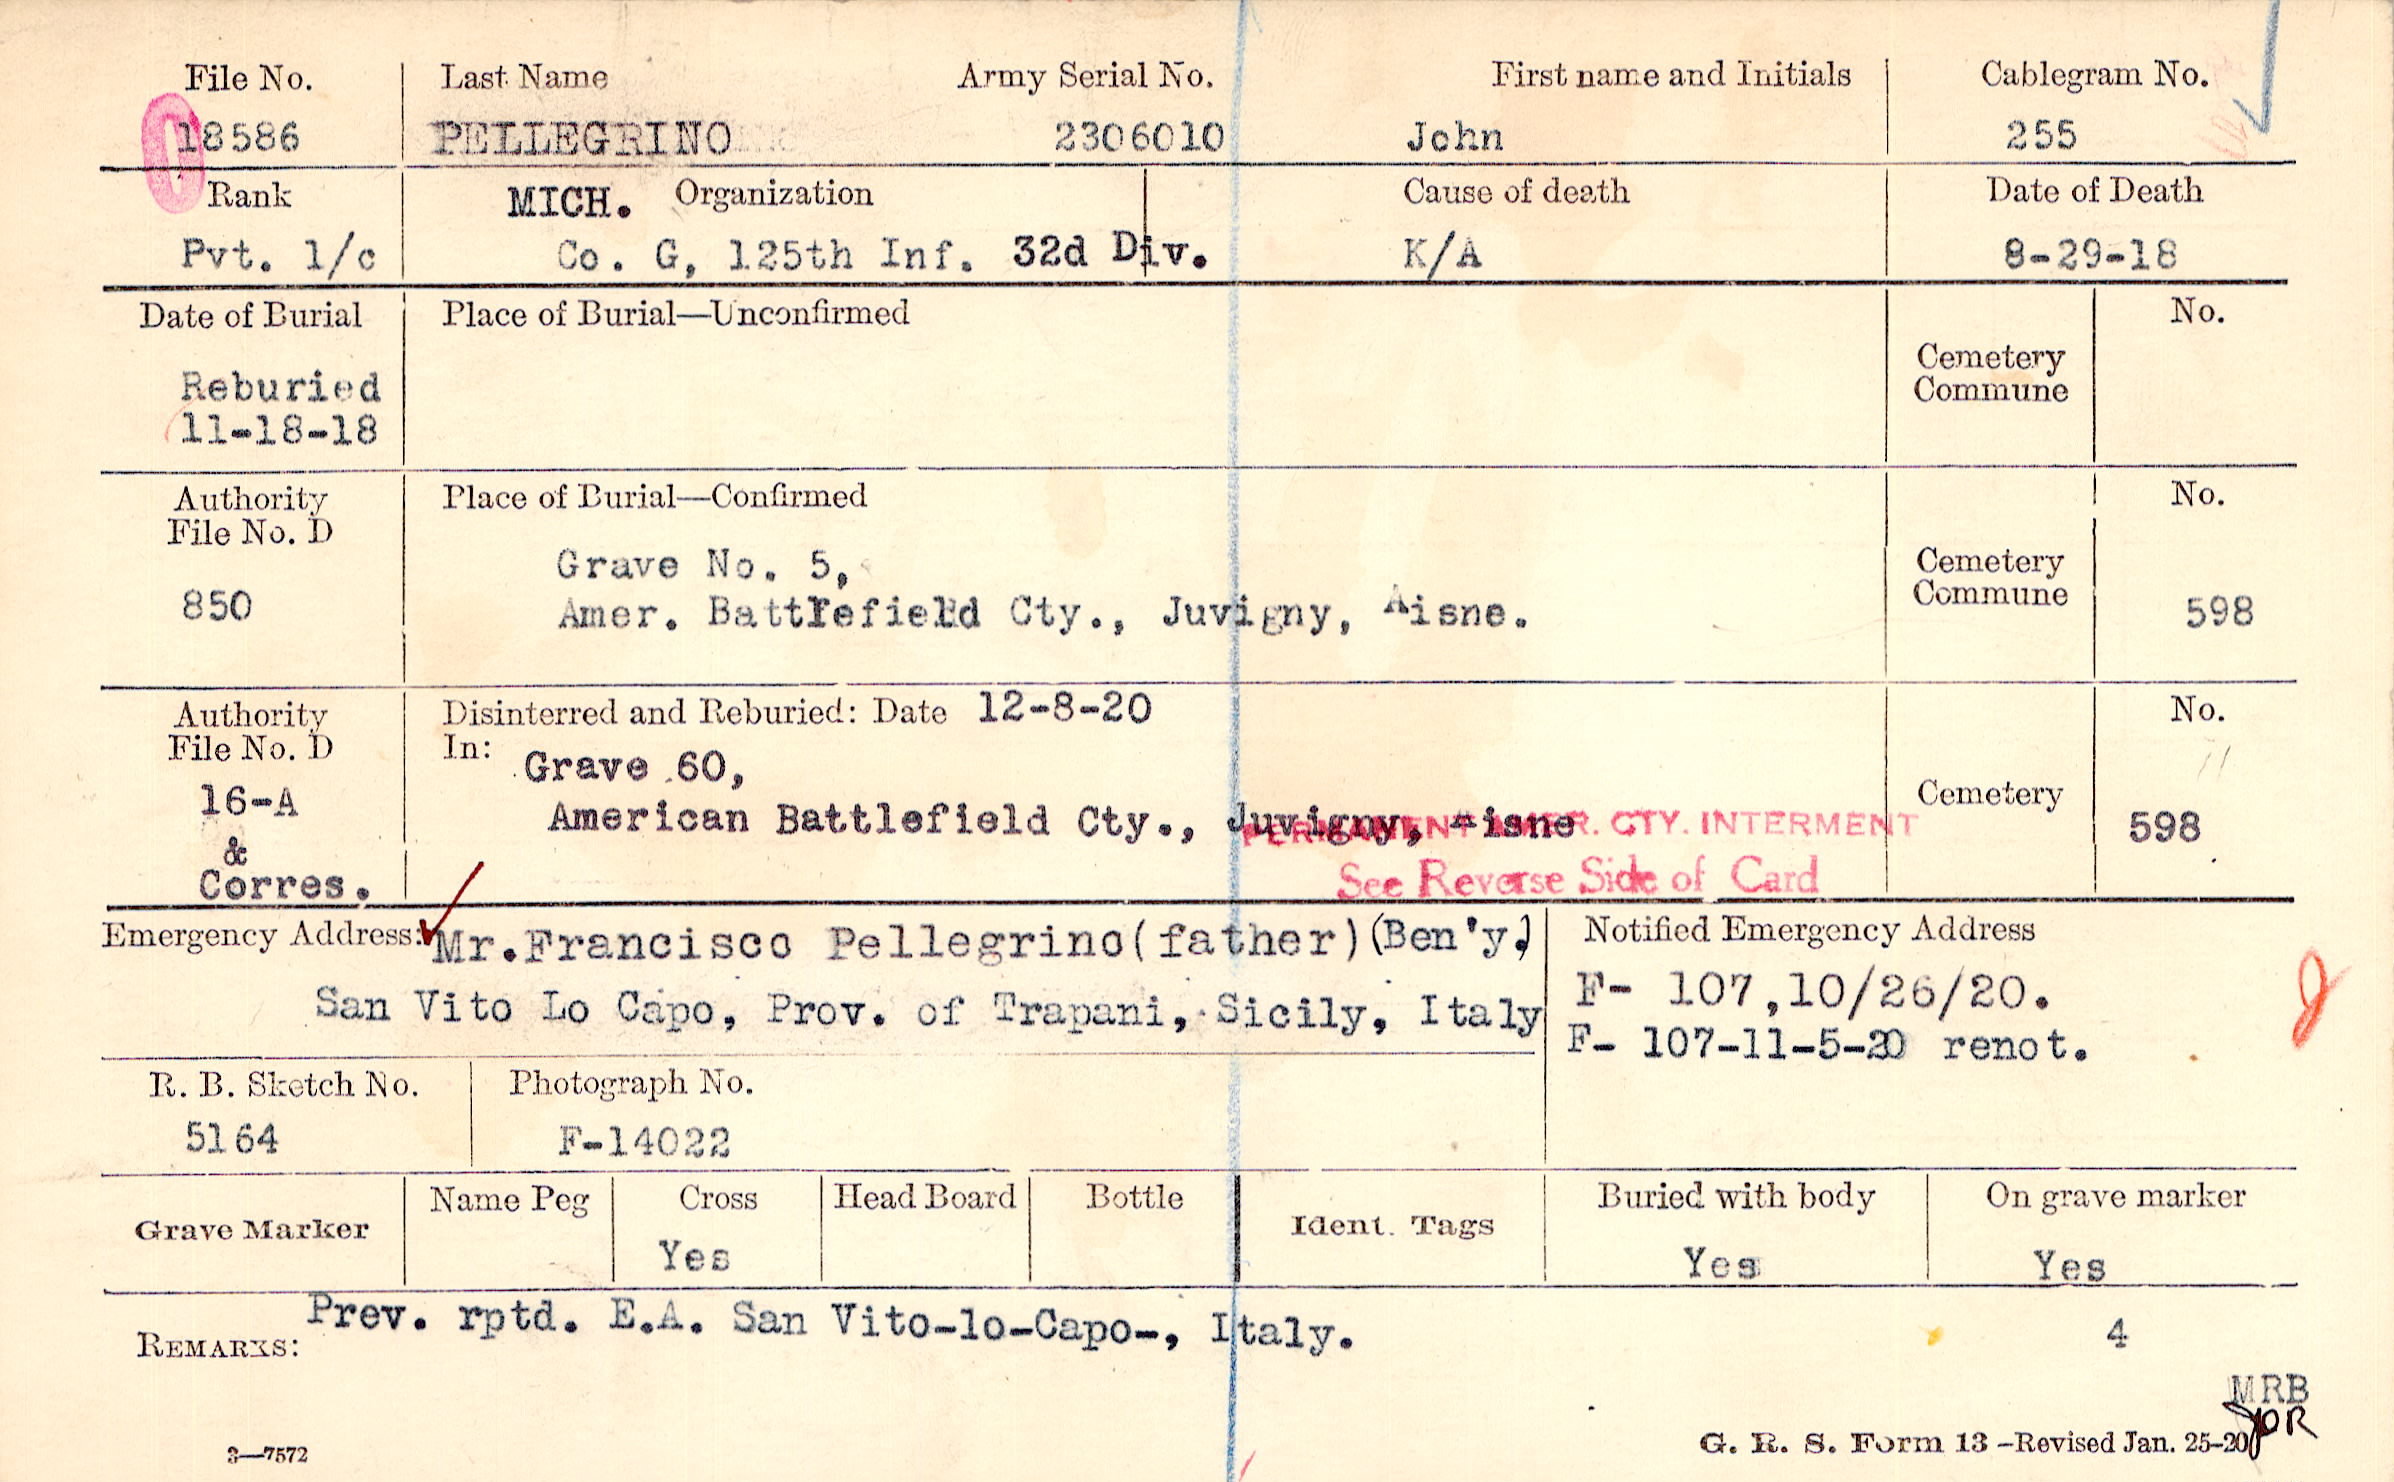 File No. Last Name Army Serial No. First name and Initials Cablegram No.
18586 PELLEGRINO 2306010 John 255
Rank MICH. Organization Cause of death Date of Death
Pvt. 1/c Co. G, 125th Inf. 32d Div. K/A 8-29-18
Date of Burial Place of Burial—Unconfirmed No.
Cemetery
Commune
Reburied
11-18-18
Authority Place of Burial—Confirmed No.
File No. D
Grave No. 5, Cemetery
850 Amer. Battlefield Cty., Juvigny, Aisne. Commune 598
Authority Disinterred and Reburied: Date 12-8-20 No.
File No. D In: Grave 60,
16-A American Battlefield Cty., Juvigny, Aisne Cemetery 598
PERMANENT AMER. CTY. INTERMENT
&
Corres. See Reverse Side of Card
Emergency Address: Mr.Francisco Pellegrino(father)(Ben'y.) Notified Emergency Address
San Vito Lo Capo, Prov. of Trapani, Sicily, Italy F- 107,10/26/20.
F- 107-11-5-20 renot.
R. B. Sketch No. Photograph No.
5164 F-14022
Grave Marker Name Peg Cross Head Board Bottle Ident. Tags Buried with body On grave marker
Yes Yes Yes
REMARKS: Prev. rptd. E.A. San Vito-lo-Capo-, Italy. 4
MRB
3—7572 G. R. S. Form 13 -Revised Jan. 25-20